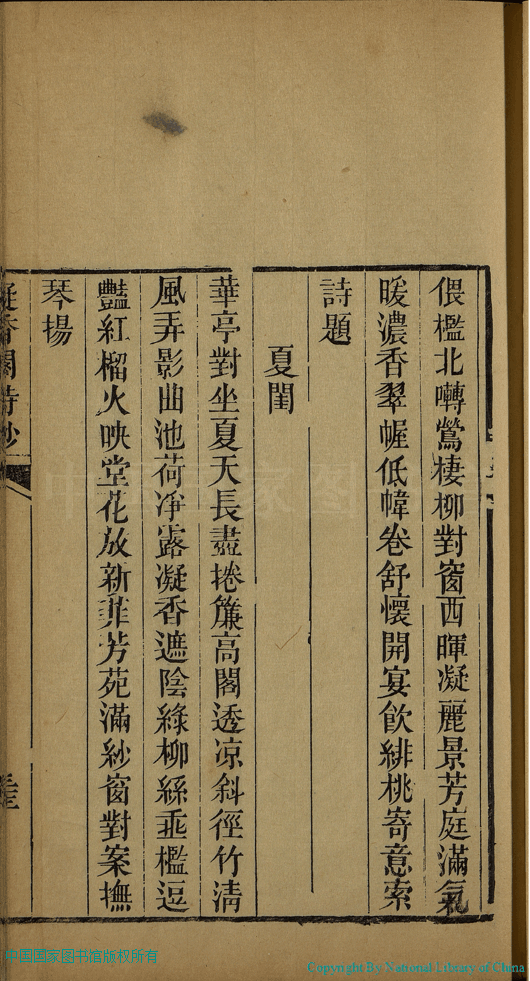 偎檻北囀鶯棲柳對窗西暉凝麗景芳庭滿氣
暖濃香翠幄低幃卷舒懷開宴飲緋桃寄意索
詩題
夏閨
華亭對坐夏天長盡捲簾高閣透凉斜徑竹清
風弄影曲池荷凈露凝香遮陰綠柳絲垂檻逗
豔紅榴火映堂花放新菲芳苑滿紗窗對案撫
琴揚
凝香閣詩鈔
中国国家图书馆版权所有
Copyright By National Library of China